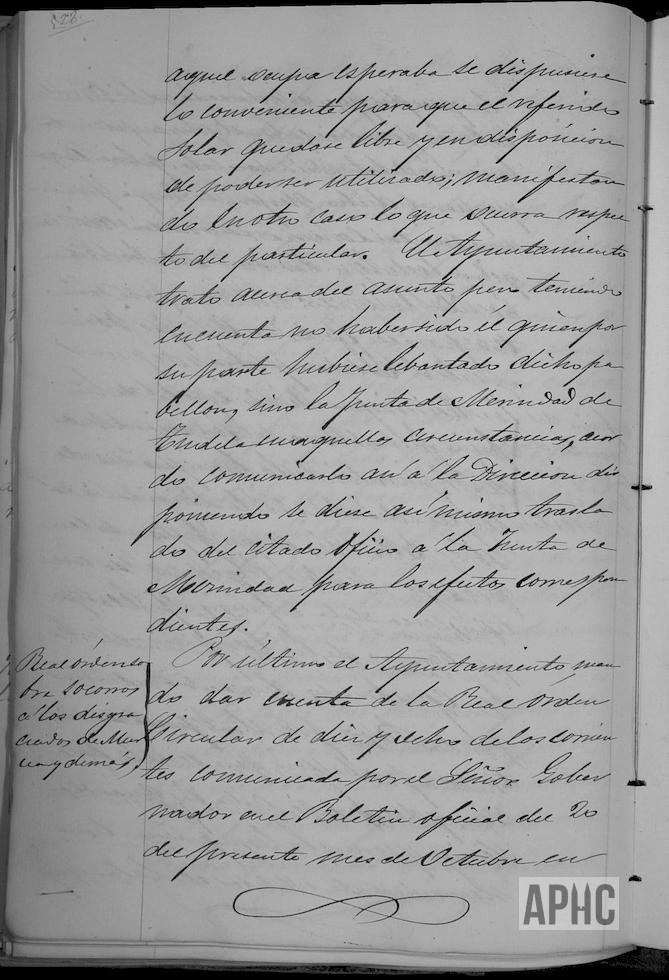 522.
aquel ocupa esperaba se dispusiere
lo conveniente para que el referido
Solar quedase libre y en disposicion
de poder ser utilizado; manifestan
do en otro caso lo que ocurra respec
to del particular. El Ayuntamiento
trató acerca del asunto pero teniendo
en cuenta no haber sido él quien por
su parte hubiese lebantado dicho pa
bellon, sino la Junta de Merindad de
Tudela en aquellas circunstancias, acor
do comunicarlo asi á la Direccion dis
poniendo se diese asi mismo trasla
do del citado oficio á la Junta de
Merindad para los efectos correspon
dientes.
Real órden so
bre socorros
á los disgra
ciados de Mur
cia y demás,
Por último el Ayuntamiento man
do dar cuenta de la Real órden
Circular de diez y ocho de los corrien
tes comunicada por el Señor Gober
nador en el Boletin oficial del 20
del presente mes de Octubre en
APHC